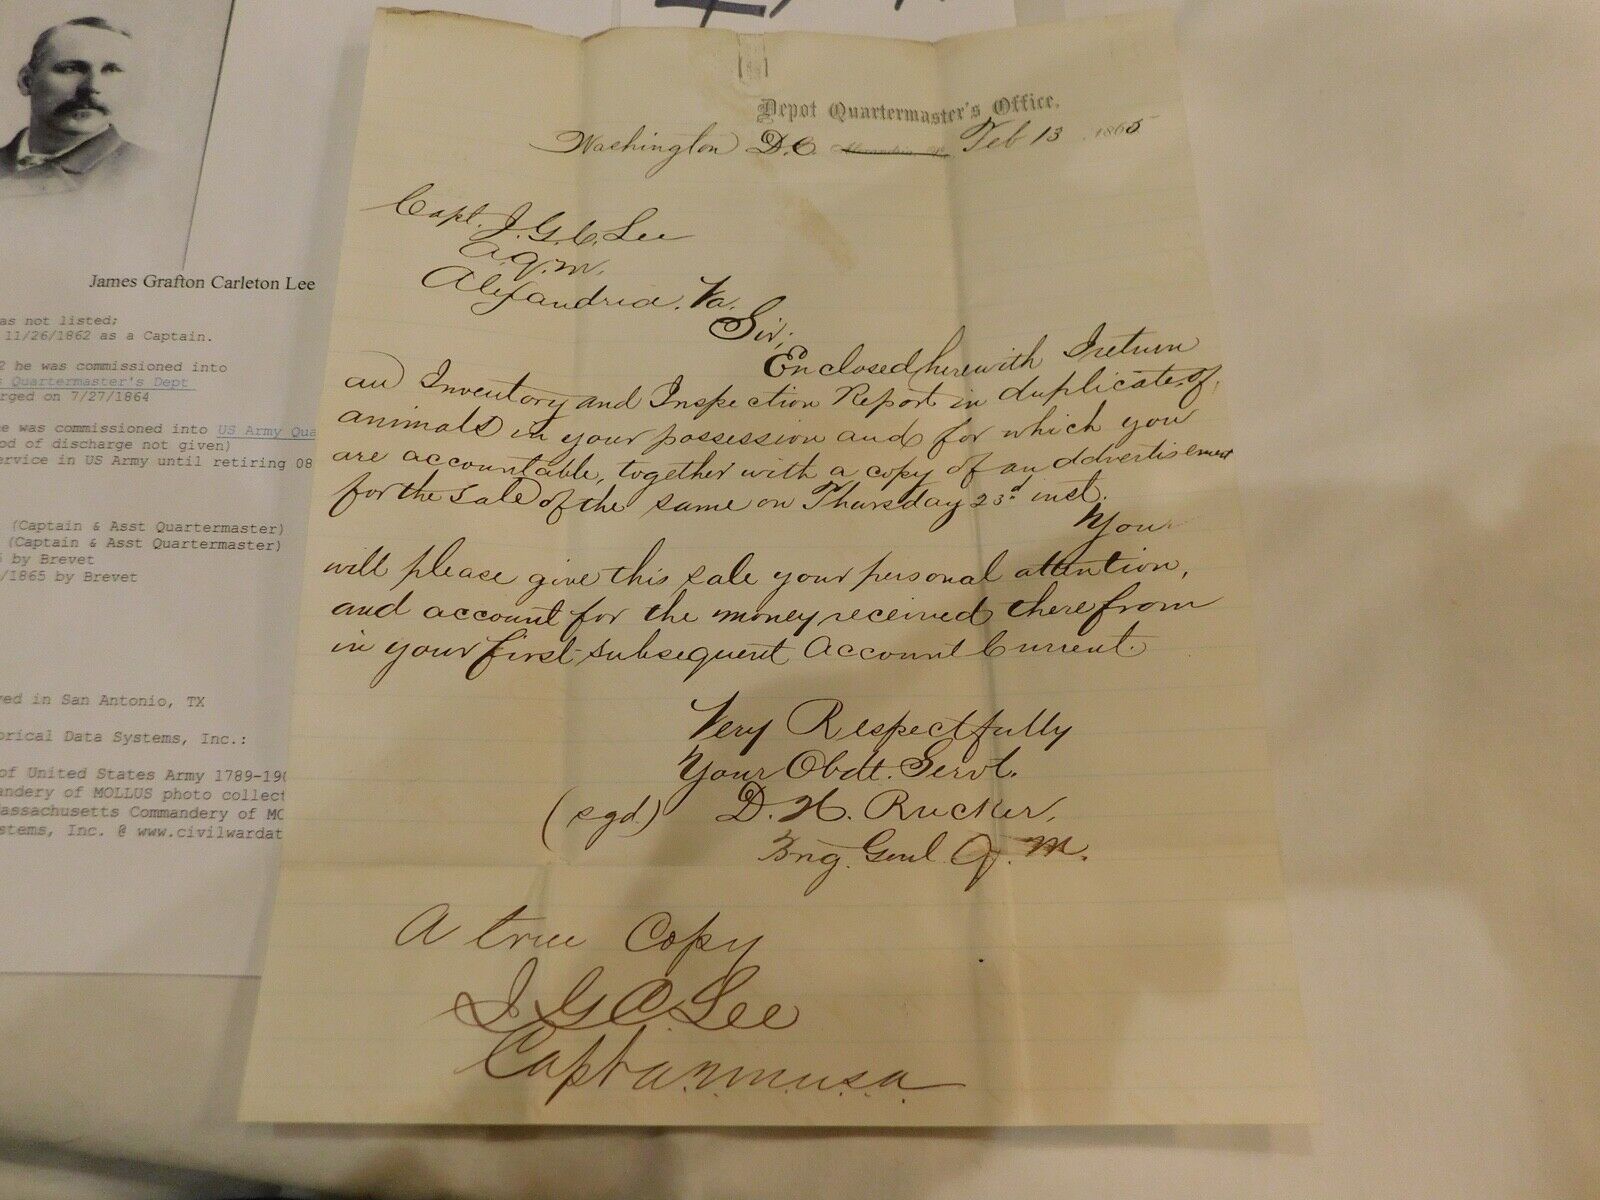 Depot Quartermaster's Office.
Washington D.C. Feb 13 1865
Capt. J. G. C. Lee
A. Q. M.
Alexandria. Va.
Sir;
Enclosed herewith I return
an Inventory and Inspection Report in duplicate of
animals in your possession and for which you
are accountable, together with a copy of an advertisement
for the sale of the same on Thursday 23d inst.
You
will please give this sale your personal attention,
and account for the money received there from
in your first subsequent Account Current.
Very Respectfully
Your Obdt. Servt.
(sgd) D. H. Rucker,
Brig. Genl. Q. M.
A true Copy
J G C Lee
Capt a.q.m. u.s.a.
James Grafton Carleton Lee
as not listed;
11/26/1862 as a Captain.
2 he was commissioned into
s Quartermaster's Dept
arged on 7/27/1864
he was commissioned into US Army Qua
od of discharge not given)
ervice in US Army until retiring 08
(Captain & Asst Quartermaster)
(Captain & Asst Quartermaster)
5 by Brevet
/1865 by Brevet
ved in San Antonio, TX
orical Data Systems, Inc.:
of United States Army 1789-190
andery of MOLLUS photo collect
assachusetts Commandery of MO
stems, Inc. @ www.civilwardat